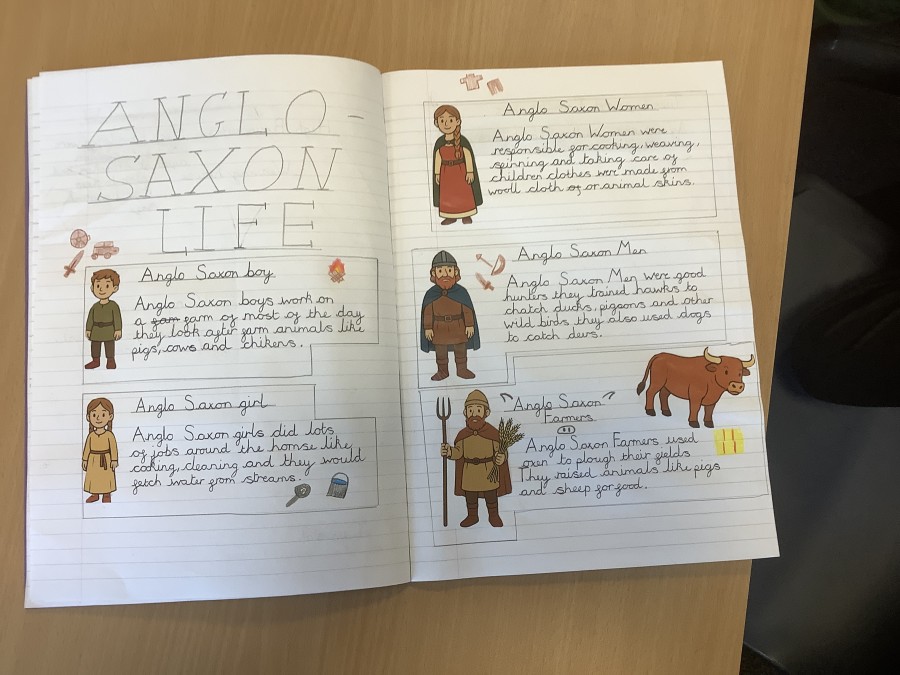 ANGLO-
SAXON
LIFE
Anglo Saxon boy
Anglo Saxon boys work on
a farm of most of the day
they look after farm animals like
pigs, cows and chikens.
Anglo Saxon girl
Anglo Saxon girls did lots
of jobs around the homse like
cooking, cleaning and they would
fetch water from streams.
Anglo Saxon Women
Anglo Saxon Women were
responsible for cooking, weaving,
spinning and taking care of
children clothes were made from
wooll cloth of or animal skins.
Anglo Saxon Men
Anglo Saxon Men were good
hunters they trained hawks to
chatch ducks, pigeons and other
wild birds they also used dogs
to catch deers.
Anglo Saxon
Farmers
Anglo Saxon Farmers used
oxen to plough their fields
They raised animals like pigs
and sheep for food.